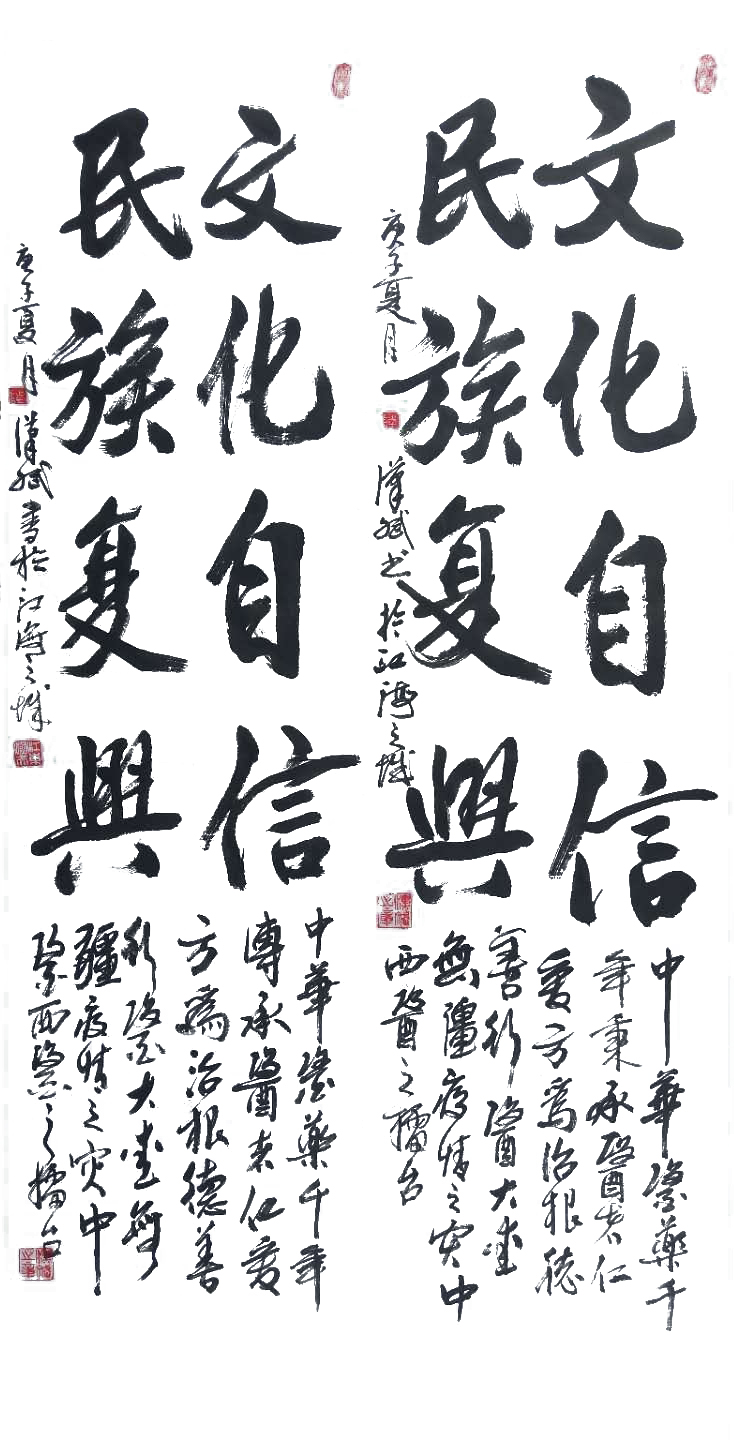 文化自信
民族复興
庚子夏月
漢斌书於江海之城
中華醫藥千
年秉承醫者仁
愛方為治根德
善行醫大愛
無疆疫情之灾中
西醫之擂台
文化自信
民族复興
庚子夏月
漢斌書於江海之城
中華醫藥千年
傳承醫者仁愛
方爲治根德善
行醫大愛無
疆疫情之灾中
醫西醫之擂台